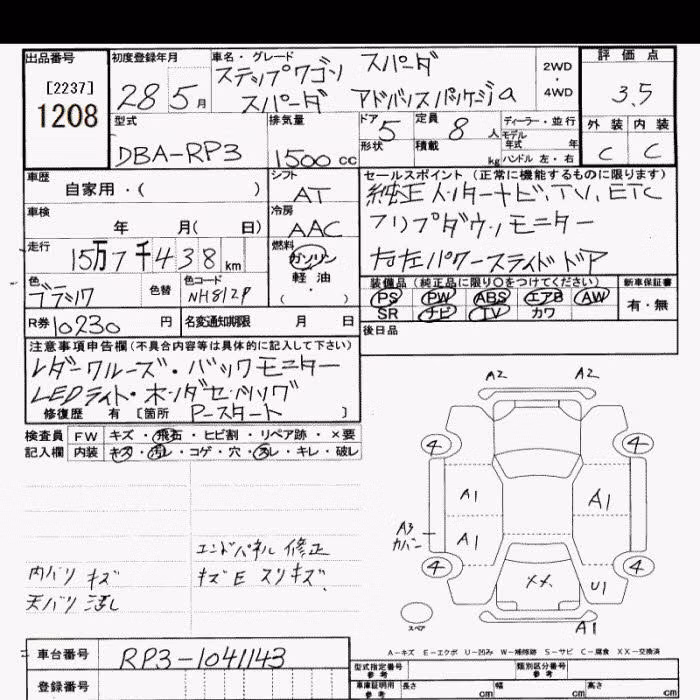 出品番号
[2237]
1208
初度登録年月
28 5月
車名・グレード
ステップワゴン スパーダ
スパーダ アドバンスパッケージα
2WD
・
4WD
評価点
3.5
外装 内装
C C
型式
DBA-RP3
排気量
1500cc
ドア 5
形状
定員 8人
積載 kg
ディーラー・並行
モデル年式 年
ハンドル 左・右
車歴
自家用・( )
シフト
AT
セールスポイント(正常に機能するものに限ります)
純正インターナビ、TV、ETC
フリップダウンモニター
右左パワースライドドア
車検
年 月( 日)
冷房
AAC
走行
15万7千438km
燃料
ガソリン
軽油
・
( )
色
ブラック
色替
色コード
NH812P
装備品(純正品に限り○をつけてください)
PS PW ABS エアB AW
SR ナビ TV カワ
新車保証書
有・無
R券 10230円
名変通知期限 月 日
後日品
注意事項申告欄(不具合内容等は具体的に記入して下さい)
レダークルーズ・バックモニター
LEDライト・ホンダセンシング
P-スタート
修復歴 有 [箇所 ]
検査員
記入欄
FW キズ・飛石・ヒビ割・リペア跡・×要
内装 キズ・汚レ・コゲ・穴・スレ・キレ・破レ
エンドパネル 修正
内バリ キズ
キズE スリキズ
天バリ 汚し
A2 A2
4 4
A1 A1
A3
カバン
A1
4 4
XX U1
スペア
A1
A-キズ E-エクボ U-凹み W-補修跡 S-サビ C-腐食 XX-交換済
車台番号
RP3-1041143
登録番号
型式指定番号
参考
類別区分番号
参考
車庫証明用
参考
長さ cm
幅 cm
高さ cm